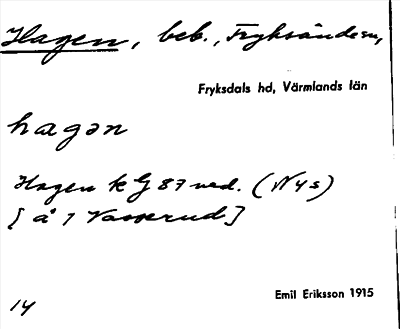 Hagen, beb., Fryksände sn,
Fryksdals hd, Värmlands län
hagən
Hagen k G 87 ned. (N 4 s)
[å 1 Vasserud]
Emil Eriksson 1915
14